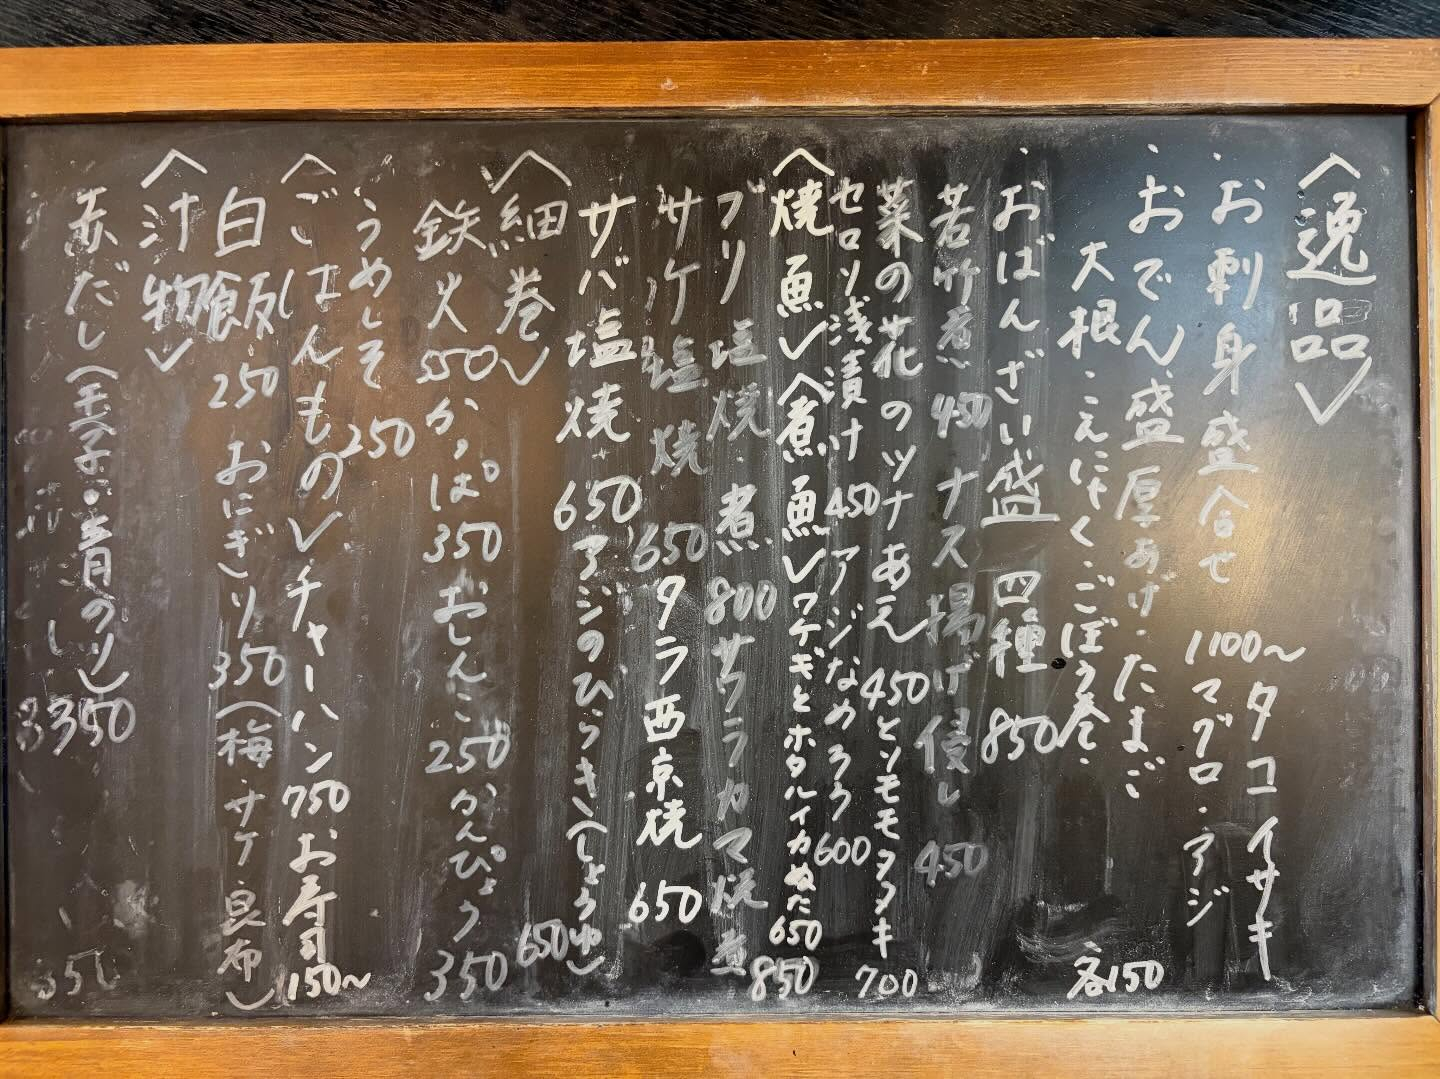 〈逸品〉
・お刺身盛合せ 1100〜 マグロ・アジ
タコ イサキ
・おでん盛 厚あげ・たまご
大根・こんにゃく・ごぼう巻・ 各150
・おばんざい盛 四種 850
若竹煮 450 ナス揚げ浸し 450
菜の花のツナあえ 450 とンモモタタキ 700
セロリ浅漬け 450 アジなめろう 600
〈焼魚〉〈煮魚〉ワケギとホタルイカぬた 650
ブリ 塩焼・煮 800 サワラカマ焼 煮 850
サケ塩焼 650 タラ西京焼 650
サバ塩焼 650 アジのひらき(しょうゆ) 650
〈細巻〉
鉄火 550 かっぱ 350 おしんこ 250 かんぴょう 350
うめしそ 250
〈ごはんもの〉チャーハン 750 お寿司 150〜
白飯 250 おにぎり 350 (梅・サケ・昆布)
〈汁物〉
赤だし(玉子・青のり) 350
350